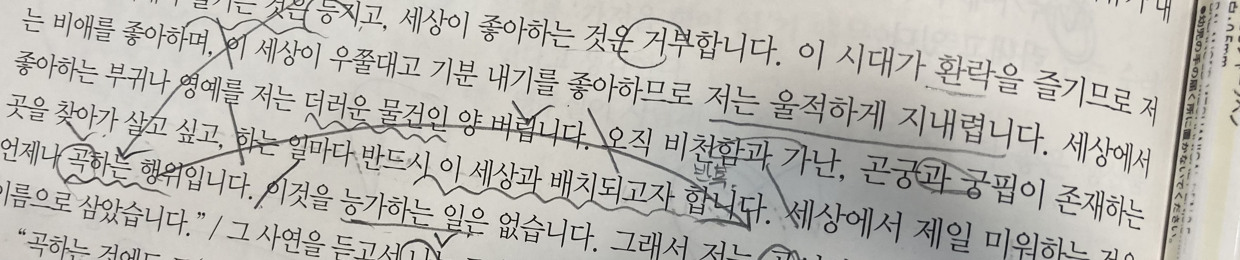 것은 등지고, 세상이 좋아하는 것은 거부합니다. 이 시대가 환락을 즐기므로 저
는 비애를 좋아하며, 이 세상이 우쭐대고 기분 내기를 좋아하므로 저는 울적하게 지내렵니다. 세상에서
좋아하는 부귀나 영예를 저는 더러운 물건인 양 버립니다. 오직 비천함과 가난, 곤궁과 궁핍이 존재하는
곳을 찾아가 살고 싶고, 하는 일마다 반드시 이 세상과 배치되고자 합니다. 세상에서 제일 미워하는 것은
언제나 곡하는 행위입니다. 이것을 능가하는 일은 없습니다. 그래서 저는
이름으로 삼았습니다.” / 그 사연을 듣고서
“곡하는 것에도